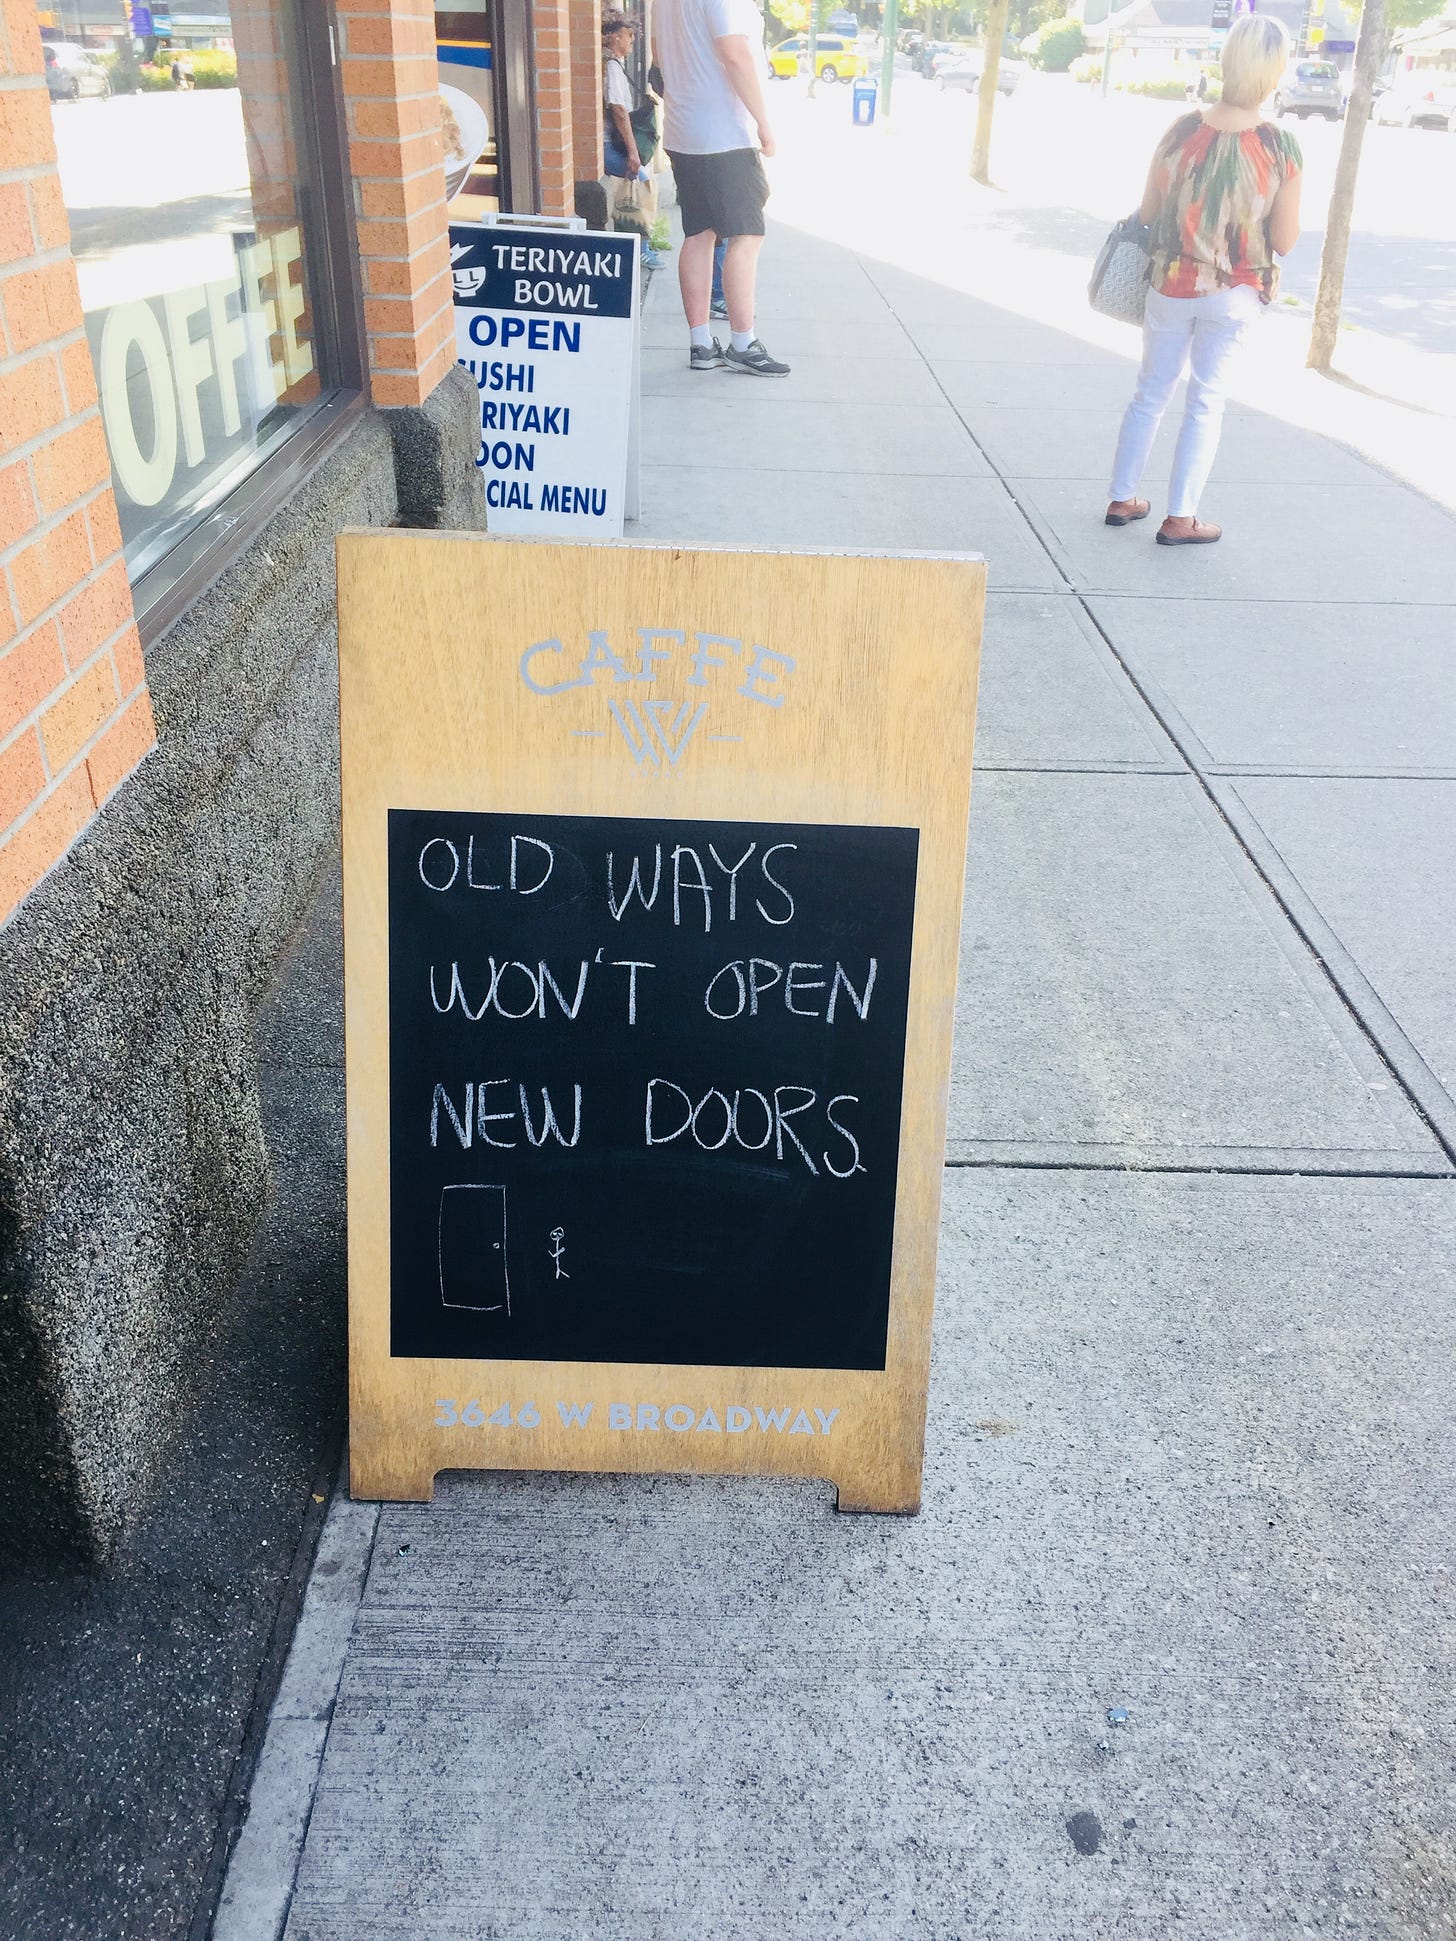 OFFEE
TERIYAKI
BOWL
OPEN
USHI
RIYAKI
DON
CIAL MENU
CAFFE
W
OLD WAYS
WON'T OPEN
NEW DOORS.
3646 W BROADWAY